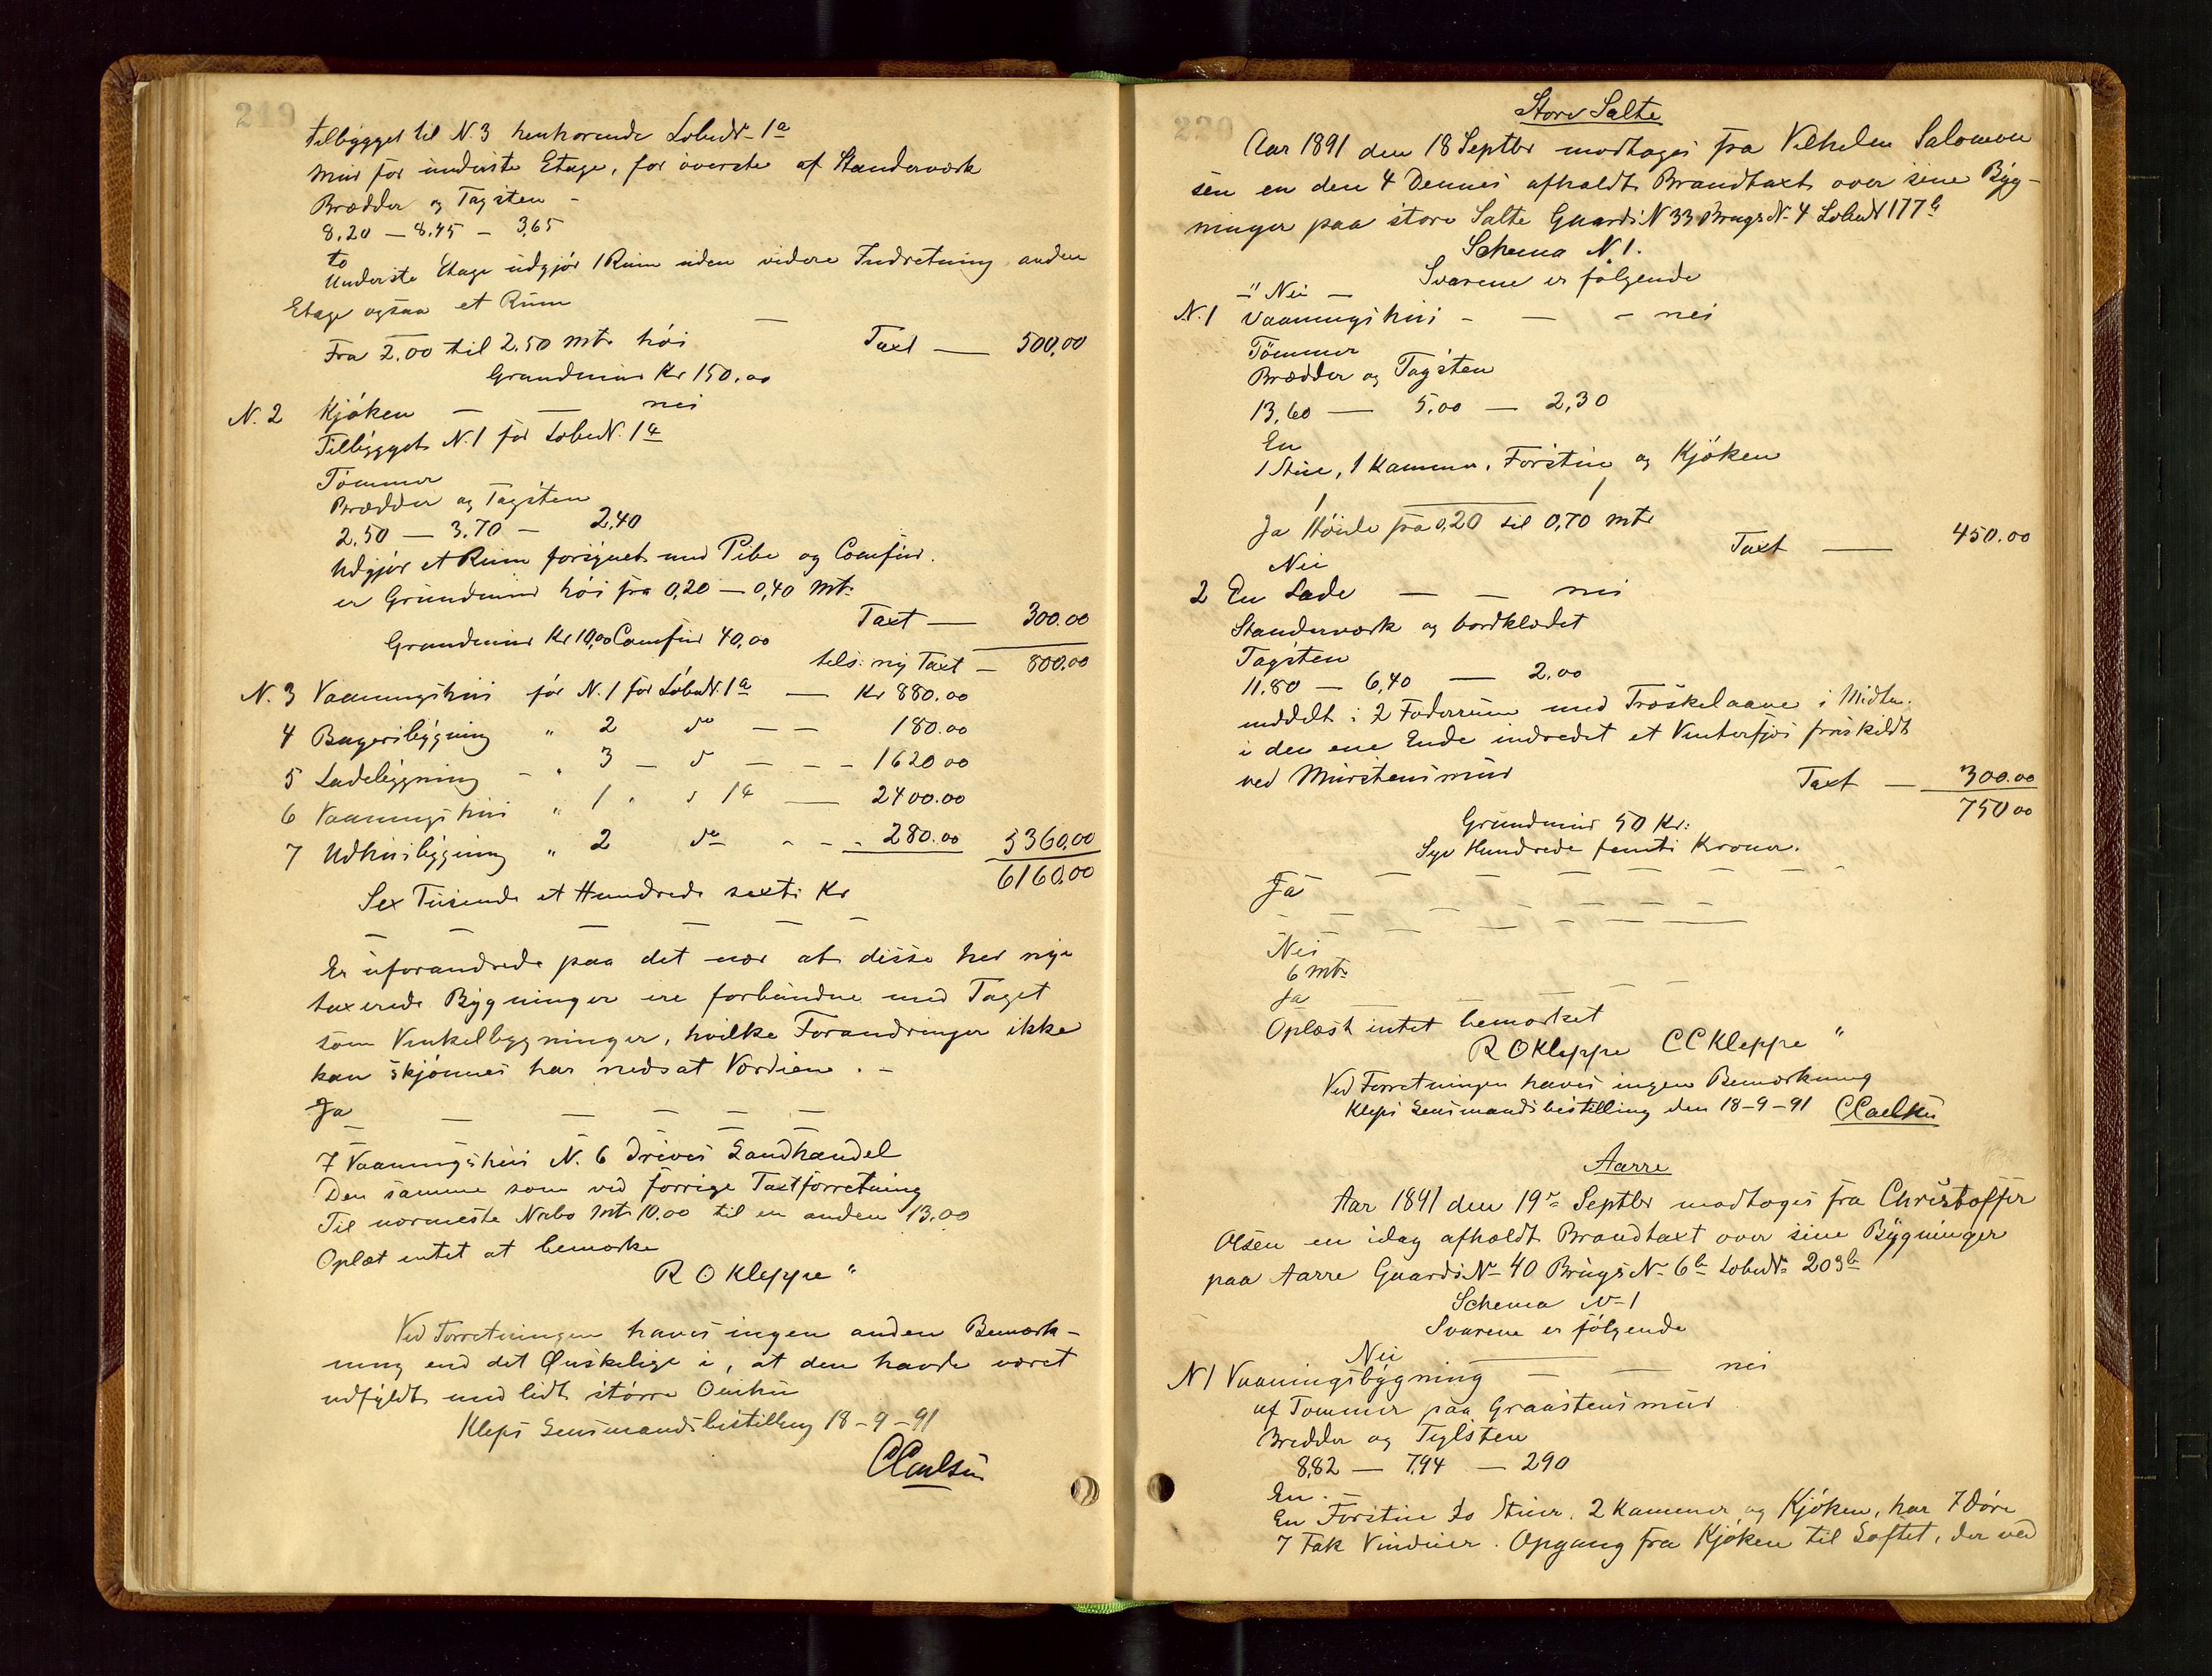 219
tilbygget til N. 3 henhørende LøbeNr. 1a
Mur for underste Etage, for øverste af Standerværk
Brædder og Tagsten -
8,20 — 8,45 — 3,65
to
Underste Etage udgjør 1 Rum uden videre Indretning anden
Etage ogsaa et Rum
Fra 2.00 til 2.50 mtr høi Taxt — 500,00
Grundmur Kr 150,00
N. 2 Kjøken — — nei
Tilbygget N. 1 før LøbeN. 1a
Tømmer
Brædder og Tagsten
2.50 — 3.70 — 2,40
Udgjør et Rum forsynet med Pibe og Comfur.
er Grundmur høi fra 0,20 — 0,40 Mtr
Taxt — 300.00
Grundmur Kr 10,00 Comfur 40,00
tils. ny Taxt — 800.00
N. 3 Vaaningshus før N. 1 for LøbeN. 1a — Kr 880.00
4 Bageribygning " 2 do — — 180.00
5 Ladebygning - " 3 — d — — - 1620 00
6 Vaaningshus " 1 " d 1a — 2400.00
7 Udhusbygning " 2 do - - - 280.00 5360,00
6160,00
Sex Tusende et Hundrede sexti Kr
Er uforandrede paa det nær at disse her nye
taxerede Bygninger ere forbundne med Taget
som Vinkelbygninger, hvilke Forandringer ikke
kan skjønnes har nedsat Værdien. -
Ja — — — — —
7 Vaaningshus N. 6 drives Landhandel
Den samme som ved forrige Taxtforretning
Til nærmeste Nabo Mtr 10.00 til en anden 13.00
Oplæst intet at bemærke
R O Kleppe "
Ved Forretningen haves ingen anden Bemærk-
ning end det Ønskelige i, at den havde været
udfyldt med lidt større Omhu
Kleps Lensmandsbestilling 18-9-91
CCarlsen
220
Store Salte
Aar 1891 den 18 Septbr modtoges fra Vilhelm Salomon
sen en den 4 Dennes afholdt Brandtaxt over sine Byg-
ninger paa store Salte GaardsN 33 BrugsN. 4 LøbeN 177b
Schema N. 1.
Svarene er følgende
" Nei —
N. 1 Vaaningshus - — - nei
Tømmer
Brædder og Tagsten
13,60 — 5,00 — 2,30
En
1 Stue, 1 Kammer, Forstue og Kjøken
1 1
Ja Høide fra 0,20 til 0,70 mtr
Taxt — 450.00
Nei
2 En Lade — — nei
Standerværk og bordklædet
Tagsten
11.80 — 6,40 — 2,00
inddelt i 2 Foderrum med Træskelaave i Midten.
i den ene Ende indredet et Vinterfjøs fraskildt
ved Murstensmur Taxt — 300.00
750 00
Grundmur 50 Kr:
Syv Hundrede femti Kroner.
Ja — — — — — —
Nei
6 Mtr
Ja
Oplæst intet bemærket
R O Kleppe C C Kleppe "
Ved Forretningen haves ingen Bemærkning
Kleps Lensmandsbestilling den 18-9-91 CCarlsen
Aarre
Aar 1891 den 19de Septbr modtoges fra Christoffer
Olsen en idag afholdt Brandtaxt over sine Bygninger
paa Aarre GaardsN. 40 BrugsN. 6b LøbeN. 203b
Schema N. 1
Svarene er følgende
Nei
N 1 Vaaningsbygning — — nei
af Tømmer paa Graastensmur
Bredder og Teglsten
8,82 — 7,94 — 2 90
En. —
En Forstue to Stuer, 2 Kammer og Kjøken, har 7 Døre
7 Fak Vinduer. Opgang fra Kjøken til Loftet, der ved